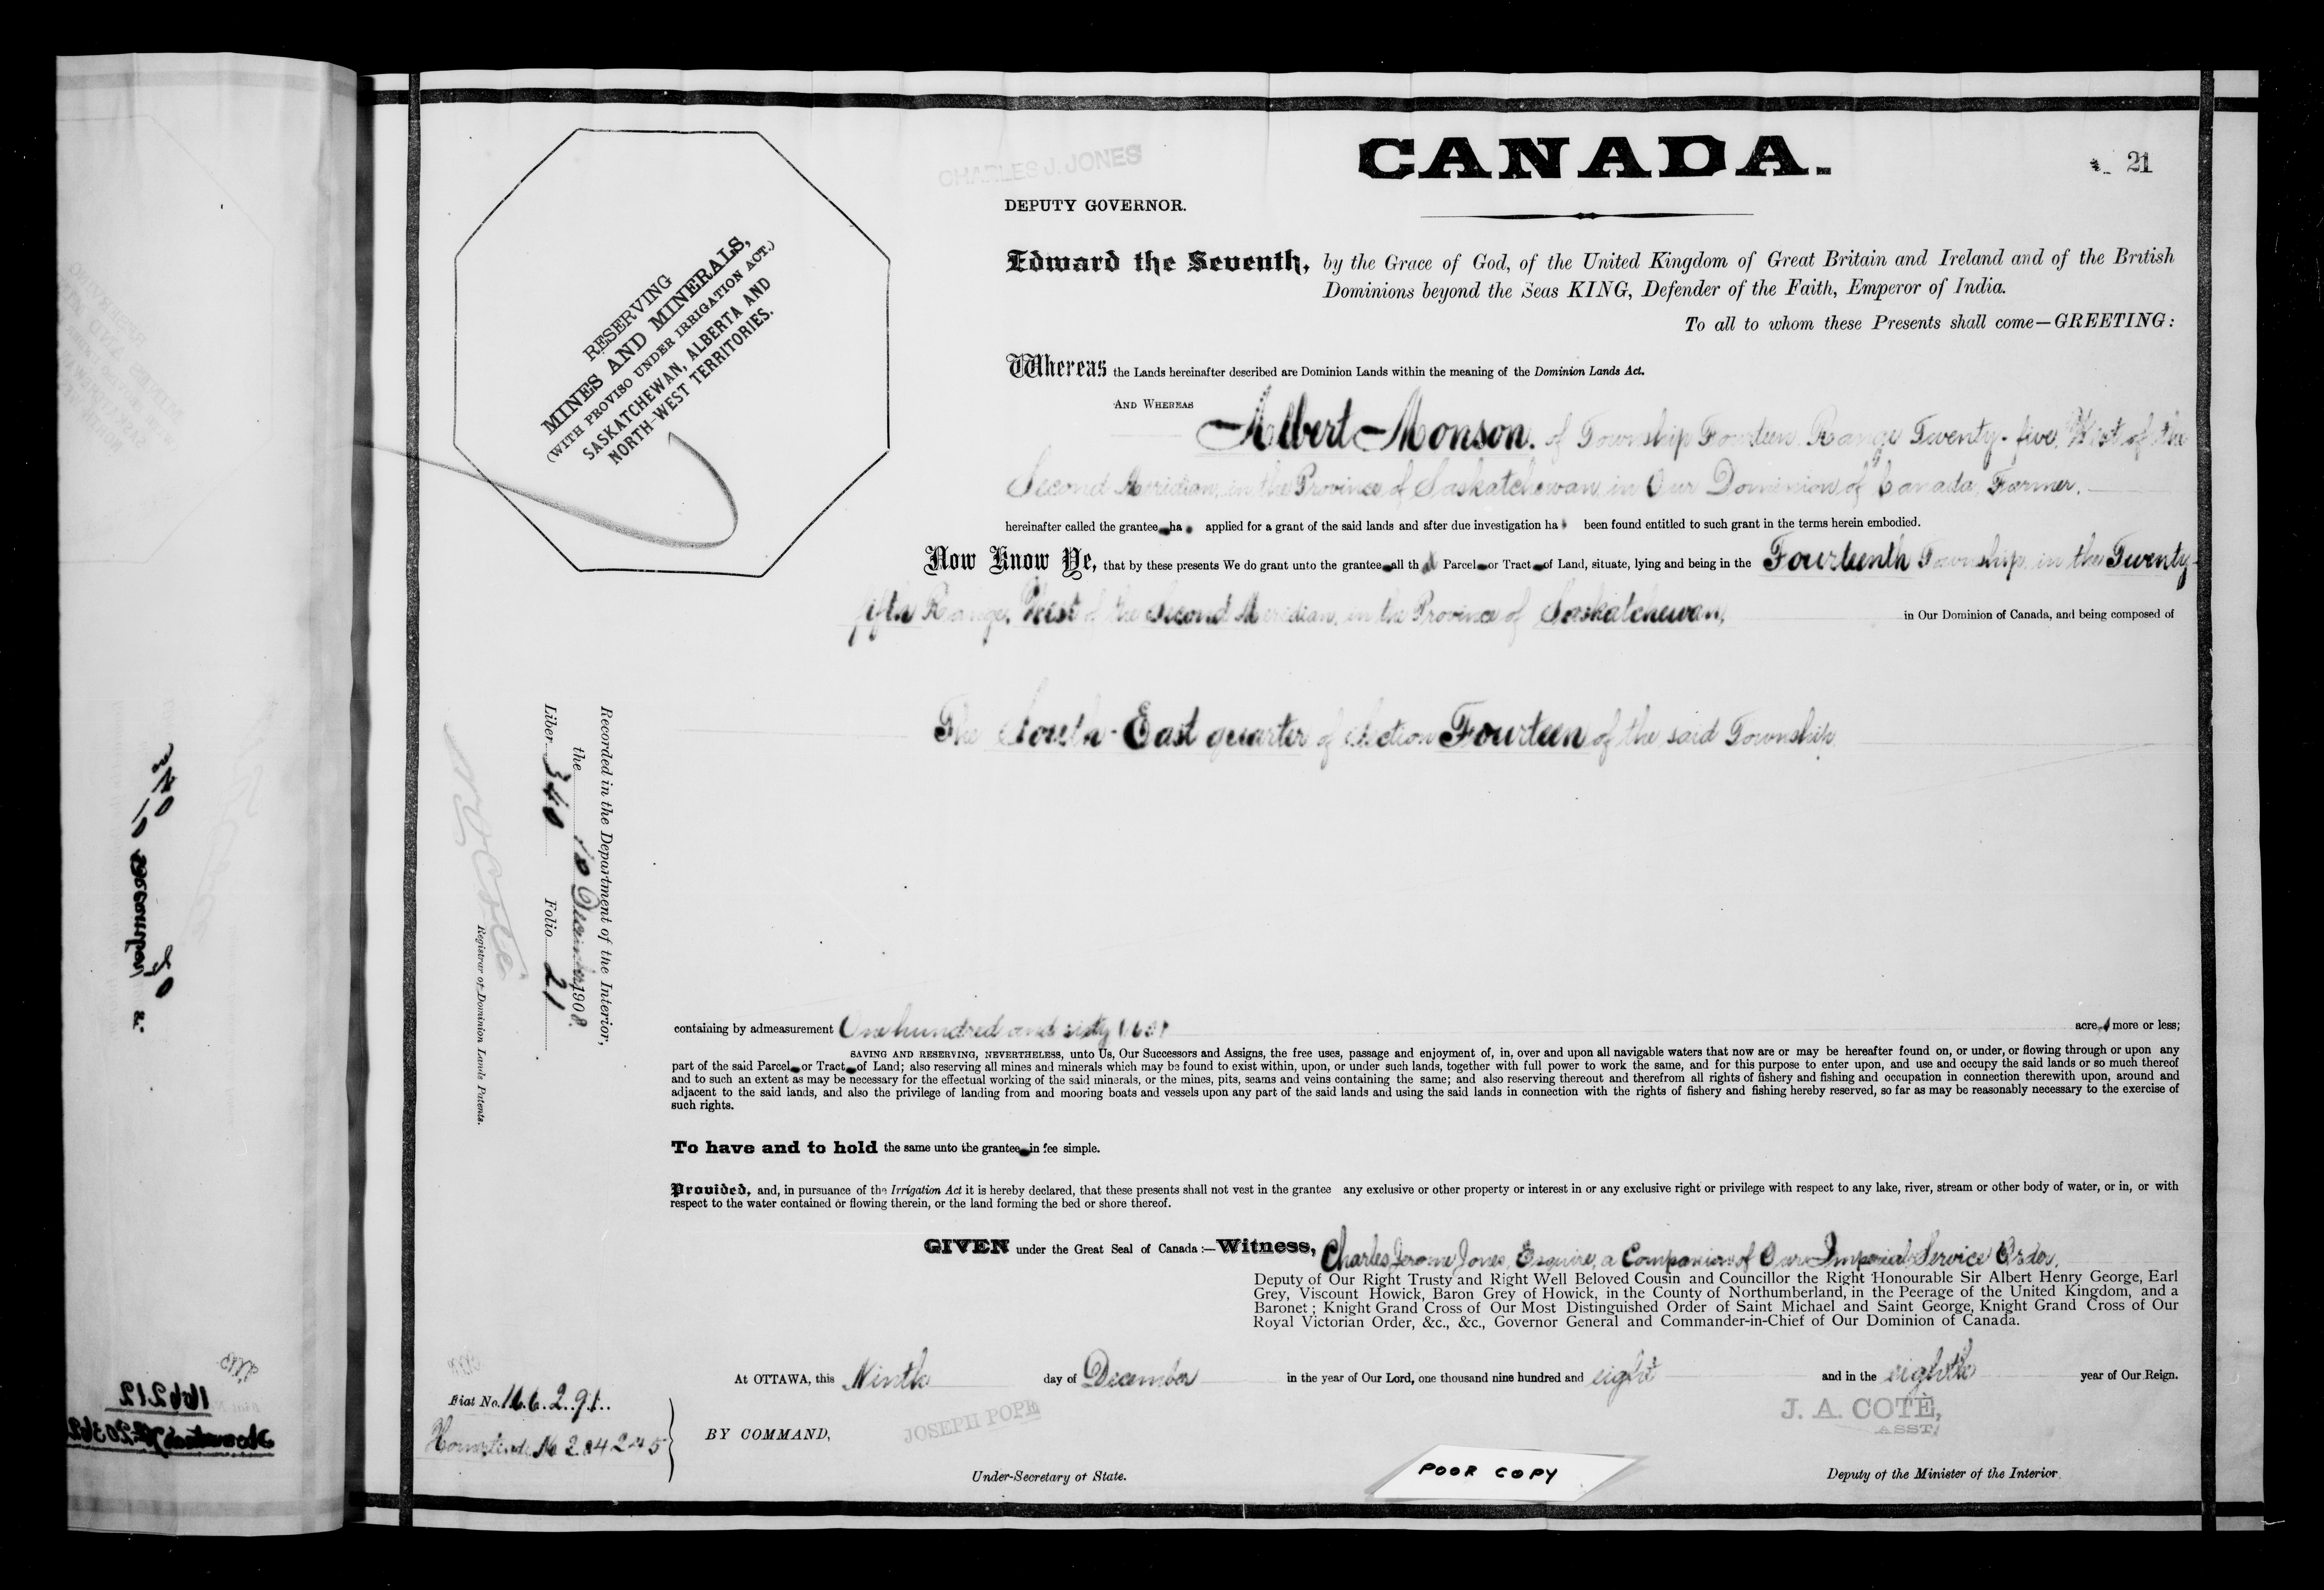 CANADA.
21
CHARLES J. JONES
DEPUTY GOVERNOR.
RESERVING
MINES AND MINERALS,
(WITH PROVISO UNDER IRRIGATION ACT.)
SASKATCHEWAN, ALBERTA AND
NORTH-WEST TERRITORIES.
Edward the Seventh, by the Grace of God, of the United Kingdom of Great Britain and Ireland and of the British
Dominions beyond the Seas KING, Defender of the Faith, Emperor of India.
To all to whom these Presents shall come—GREETING:
Whereas the Lands hereinafter described are Dominion Lands within the meaning of the Dominion Lands Act.
AND WHEREAS Albert Monson. of Township Fourteen Range Twenty-five, West of the
Second Meridian, in the Province of Saskatchewan, in Our Dominion of Canada, Farmer.
hereinafter called the grantee ha applied for a grant of the said lands and after due investigation ha been found entitled to such grant in the terms herein embodied.
Now Know Ye, that by these presents We do grant unto the grantee all th Parcel or Tract of Land, situate, lying and being in the Fourteenth Township, in the Twenty-
fifth Range, West of the Second Meridian, in the Province of Saskatchewan, in Our Dominion of Canada, and being composed of
The South-East quarter of Section Fourteen of the said Township
Recorded in the Department of the Interior,
the 10 December 1908.
Liber 340 Folio 21
Registrar of Dominion Lands Patents.
containing by admeasurement One hundred and sixty acre more or less;
SAVING AND RESERVING, NEVERTHELESS, unto Us, Our Successors and Assigns, the free uses, passage and enjoyment of, in, over and upon all navigable waters that now are or may be hereafter found on, or under, or flowing through or upon any
part of the said Parcel or Tract of Land; also reserving all mines and minerals which may be found to exist within, upon, or under such lands, together with full power to work the same, and for this purpose to enter upon, and use and occupy the said lands or so much thereof
and to such an extent as may be necessary for the effectual working of the said minerals, or the mines, pits, seams and veins containing the same; and also reserving thereout and therefrom all rights of fishery and fishing and occupation in connection therewith upon, around and
adjacent to the said lands, and also the privilege of landing from and mooring boats and vessels upon any part of the said lands and using the said lands in connection with the rights of fishery and fishing hereby reserved, so far as may be reasonably necessary to the exercise of
such rights.
To have and to hold the same unto the grantee in fee simple.
Provided, and, in pursuance of the Irrigation Act it is hereby declared, that these presents shall not vest in the grantee any exclusive or other property or interest in or any exclusive right or privilege with respect to any lake, river, stream or other body of water, or in, or with
respect to the water contained or flowing therein, or the land forming the bed or shore thereof.
GIVEN under the Great Seal of Canada:—Witness, Charles Jerome Jones, Esquire, a Companion of Our Imperial Service Order,
Deputy of Our Right Trusty and Right Well Beloved Cousin and Councillor the Right Honourable Sir Albert Henry George, Earl
Grey, Viscount Howick, Baron Grey of Howick, in the County of Northumberland, in the Peerage of the United Kingdom, and a
Baronet; Knight Grand Cross of Our Most Distinguished Order of Saint Michael and Saint George, Knight Grand Cross of Our
Royal Victorian Order, &c., &c., Governor General and Commander-in-Chief of Our Dominion of Canada.
At OTTAWA, this Ninth day of December in the year of Our Lord, one thousand nine hundred and eight and in the eighth year of Our Reign.
Fiat No. 166291
Homestead No 204245
BY COMMAND,
JOSEPH POPE
Under-Secretary of State.
J. A. COTÉ,
ASST.
Deputy of the Minister of the Interior.
POOR COPY